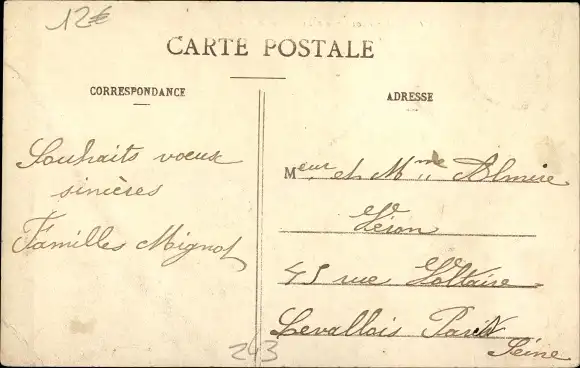 12€
CARTE POSTALE
CORRESPONDANCE
ADRESSE
Souhaits voeux
sincères
Familles Mignot
Meur et Mme Almire
Léron
45 rue Voltaire
Levallois Paris
Seine
243